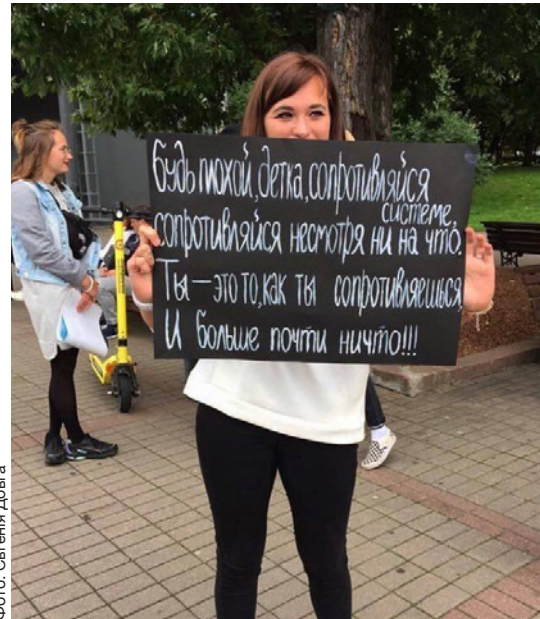 Будь плохой, детка, сопротивляйся
системе,
сопротивляйся несмотря ни на что.
Ты — это то, как ты сопротивляешься,
И больше почти ничто!!!
Фото: Євгенія Довга